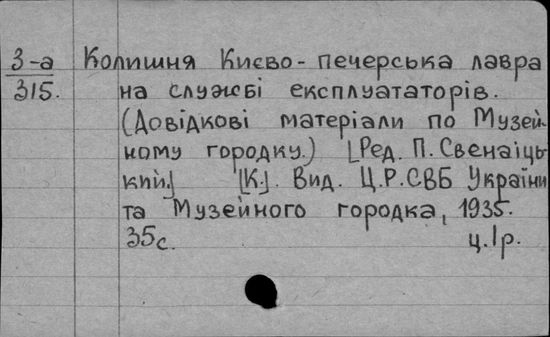 3-а Колишня Києво-печерська лавра
315. на службі експлуататорів.
(Довідкові матеріали по Музей-
ному городку.) [Ред. П. Свенаіць-
кий.] [К.]. Вид. Ц.Р.СВБ України
та Музейного городка, 1935.
35с. ц.1р.